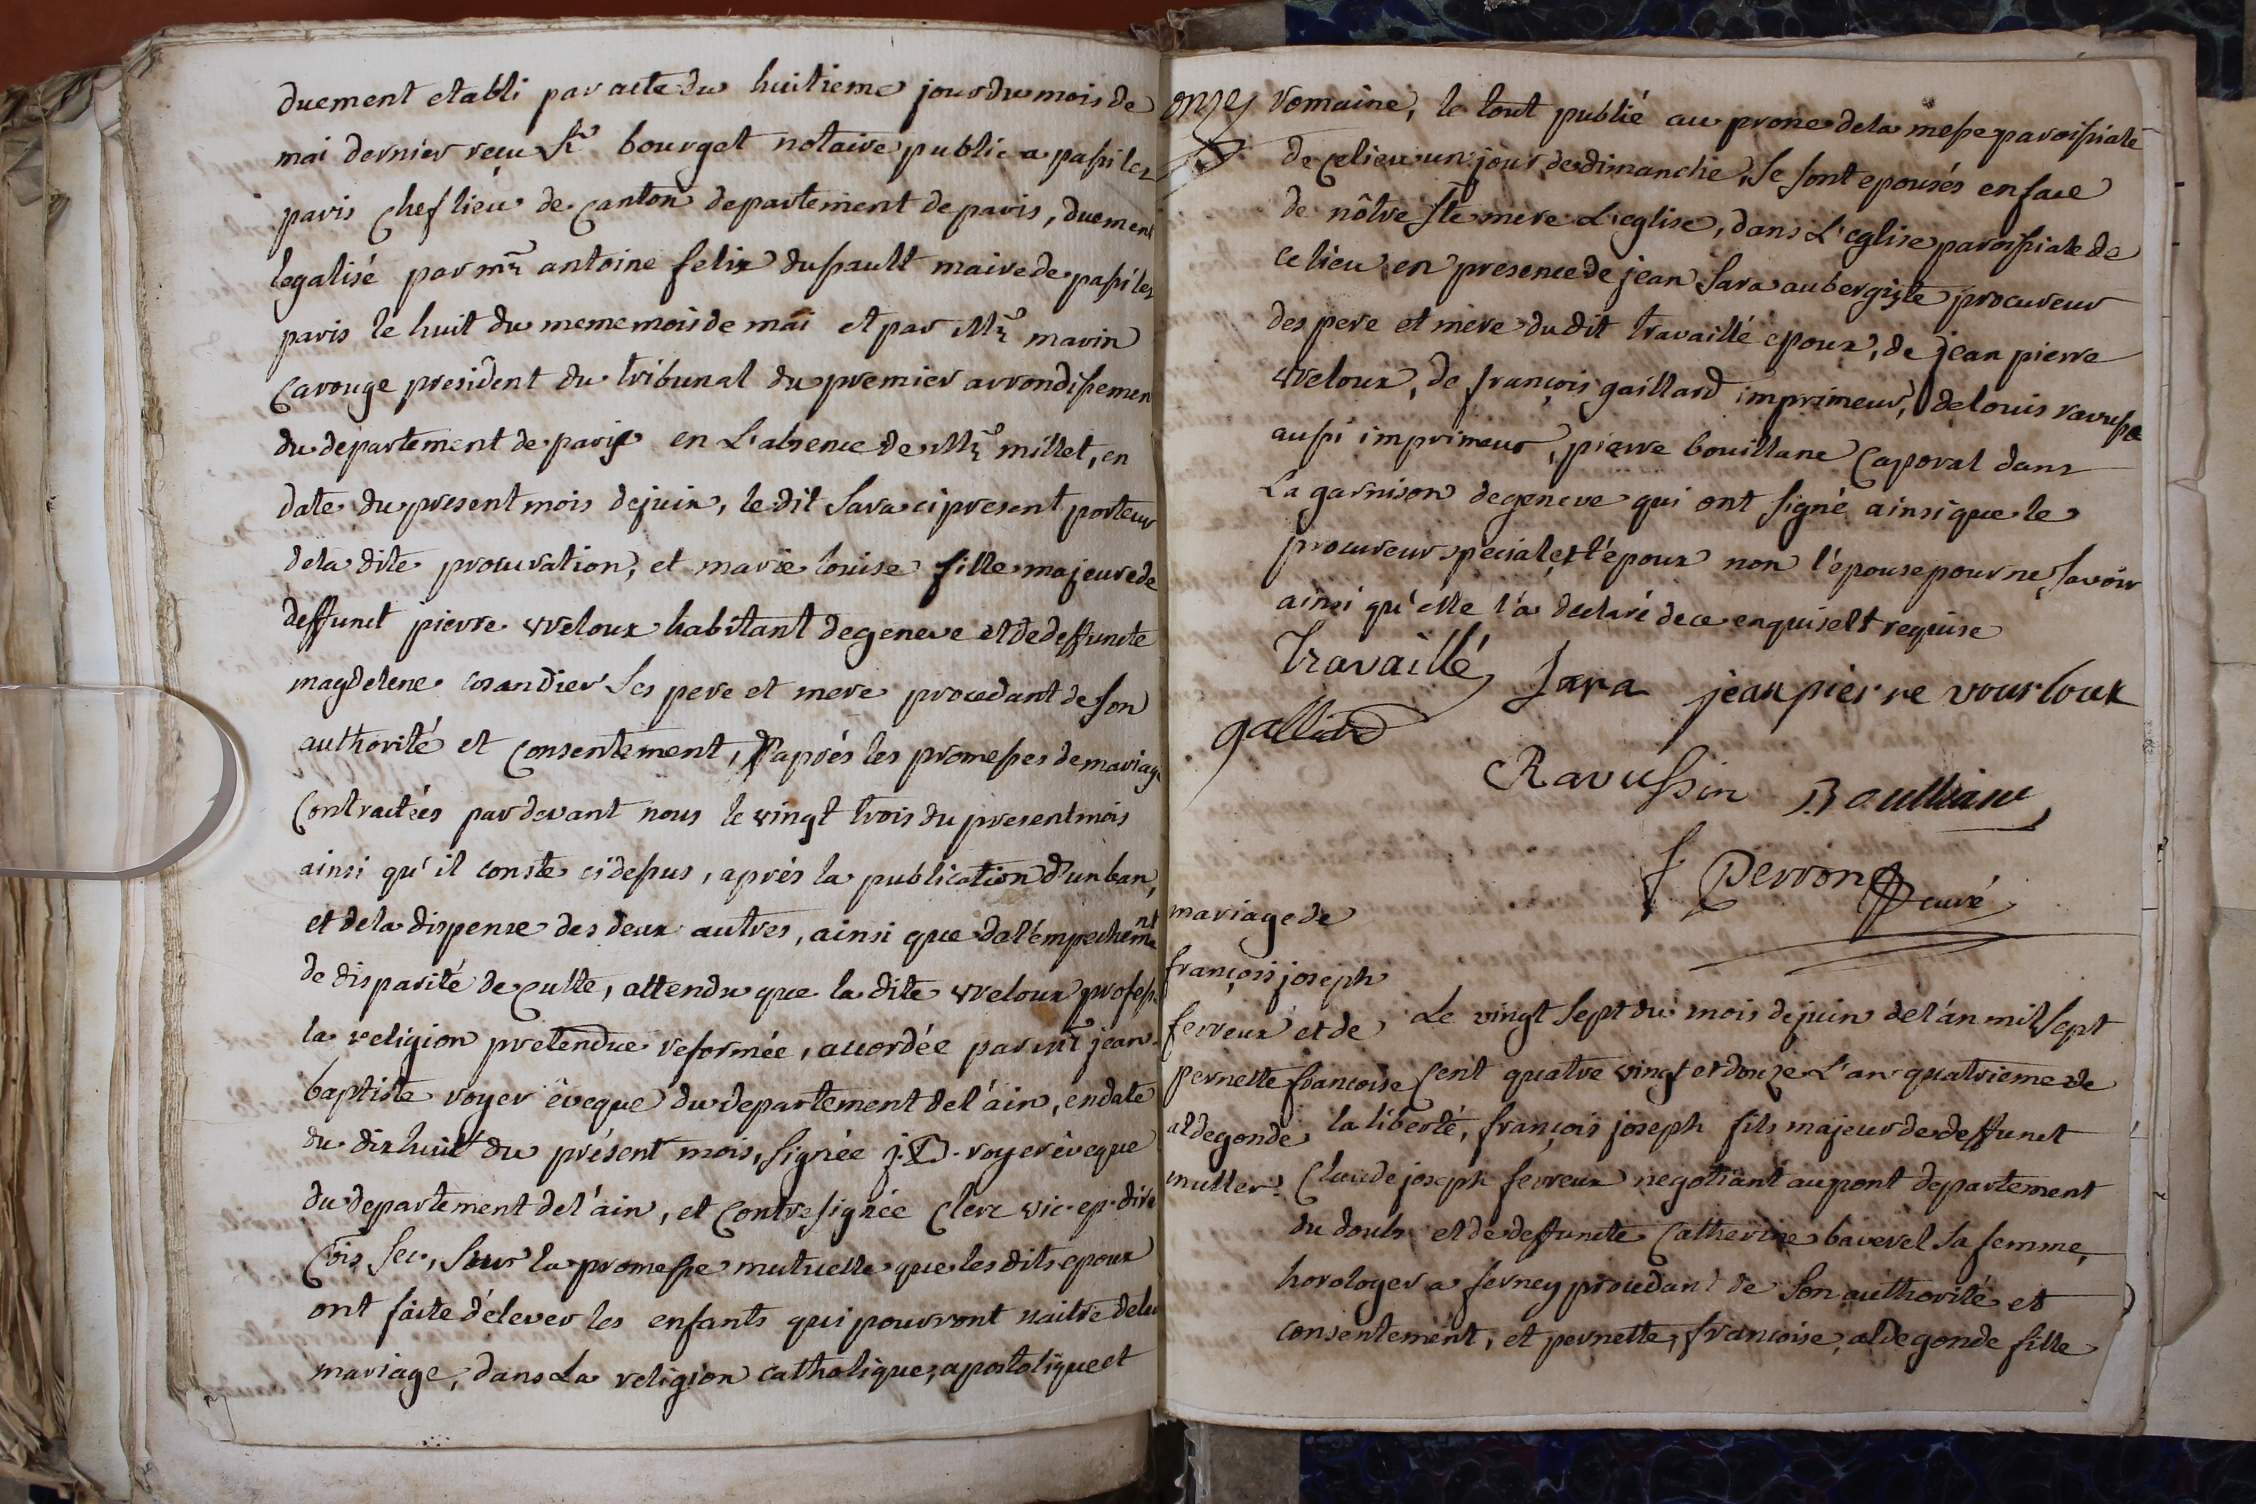 duement etabli par acte du huitieme jour du mois de
mai dernier reçu Sr. bourget notaire public a passi les
paris chef lieu de canton departement de paris, duement
legalisé par mr. antoine felix dusault maire de passi les
paris le huit du meme mois de mai et par Mr. marin
Carouge president du tribunal du premier arrondissemen
du departement de paris en L'absence de Mr. millet, en
date du present mois de juin, le dit Sara ci present porteur
de la dite procuration, et marie louise fille majeure de
deffunt pierre vveloux habitant de geneve et de deffuncte
magdelene cosandier Ses pere et mere procedant de Son
authorité et Consentement, d'aprés les promesses de mariage
Contractées pardevant nous le vingt trois du present mois
ainsi qu'il conste ci dessus, aprés la publication d'un ban,
et de la dispense des deux autres, ainsi que de l'empechemnt
de disparité de culte, attendu que la dite vveloux profess
la religion pretendue reformée, accordée par mr jean
baptiste royer êveque du departement de l'ain, en date
du dix huit du présent mois, Signée j.B. royer êveque
du departement de l'ain, et Contresignée Clerc vic. ep. dire
Cois Sec, Sur la promesse mutuelle que les dits epoux
ont faite d'élever les enfants qui pourront naitre de leu
mariage, dans La religion catholique, apostolique et
onze
romaine, le tout publié au prone de la messe paroissiale
de ce lieu un jour de dimanche, Se sont epousés en face
de nôtre Ste mere L'eglise, dans L'eglise paroissiale de
ce lieu en presence de jean Sara aubergiste procureur
des pere et mere du dit travaillé epoux, de jean pierre
vveloux, de françois gaillard imprimeur, de louis ravussin
aussi imprimeur, pierre bouillane Caporal dans
La garnison de geneve qui ont signé ainsi que le
procureur special et l'époux non l'épouse pour ne Savoir
ainsi qu'elle l'a declaré de ce enquise et requise
Travaillé Sara jean pierre vourloux
gallard
Ravussin Boulliane
f Perron curé
mariage de
françois joseph
ferreux et de
pernette françoise
aldegonde
muller.
Le vingt Sept du mois de juin de l'an mil Sept
Cent quatre vingt et douze L'an quatrieme de
la liberté, françois joseph fils majeur de deffunct
Claude joseph ferreux negotiant au pont departement
du doubs et de deffuncte Catherine baverel Sa femme,
horologer a ferney procedant de Son authorité et
consentement, et pernette, françoise, aldegonde fille